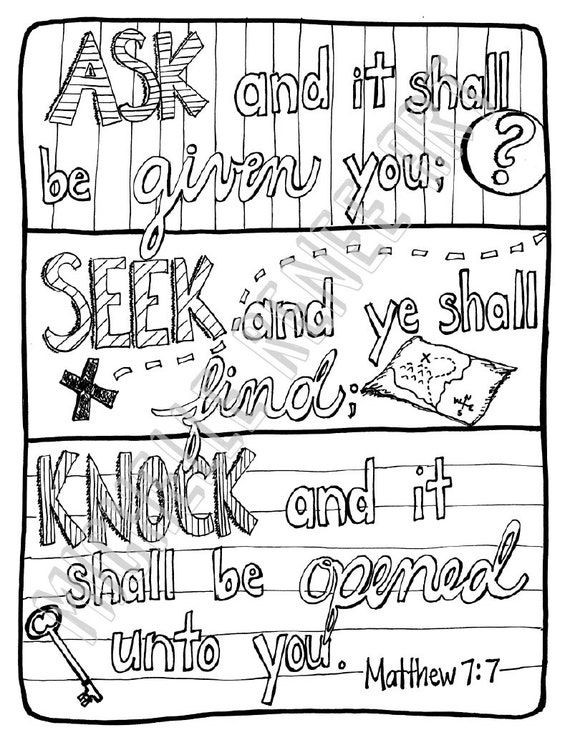 ASK and it shall
be given you;
?
SEEK and ye shall
find;
KNOCK and it
shall be opened
unto you.
Matthew 7:7